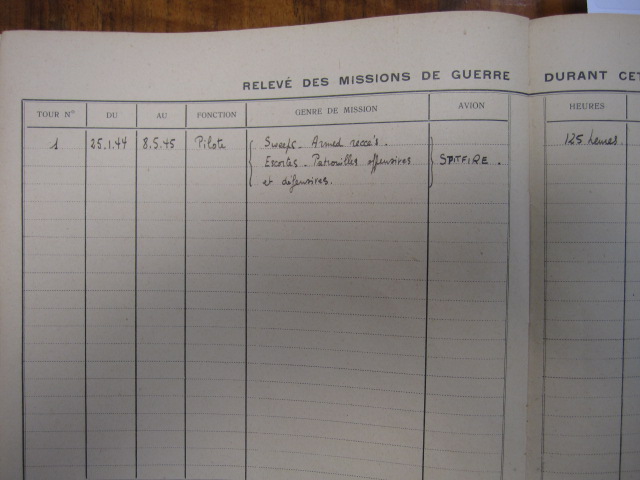 RELEVÉ DES MISSIONS DE GUERRE DURANT CET
TOUR N° DU AU FONCTION GENRE DE MISSION AVION HEURES
1 25.1.44 8.5.45 Pilote Sweeps - Armed recce's. 125 heures
Escortes - Patrouilles offensives SPITFIRE.
et défensives.